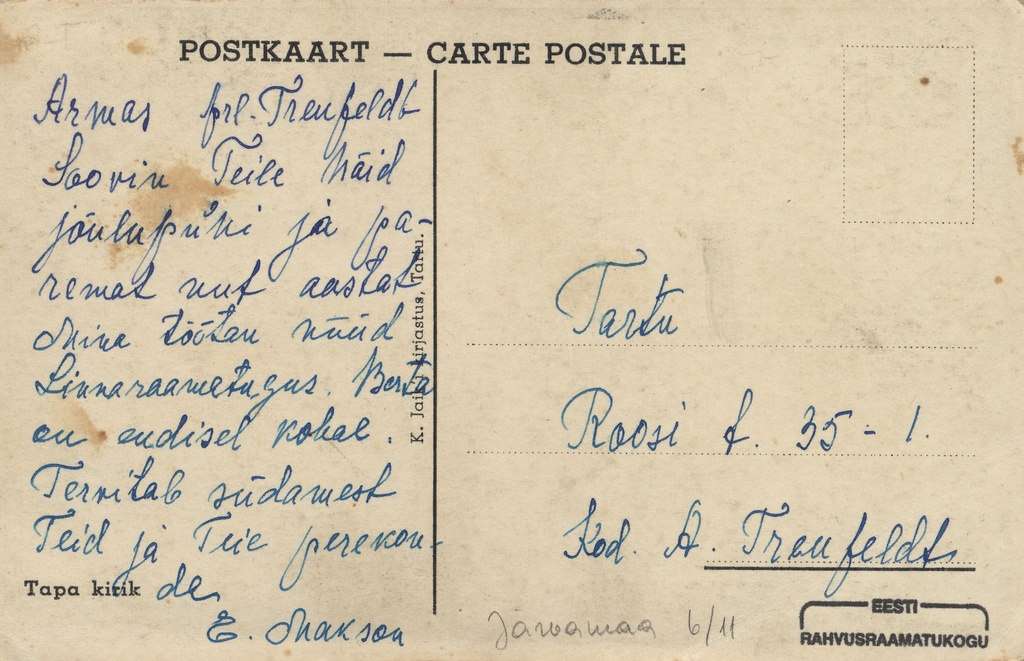 POSTKAART — CARTE POSTALE
Armas prl. Treufeldt
Soovin Teile häid
jõulupühi ja pa-
remat uut aastat
Mina töötan nüüd
Linnaraamatugus. Berta
on endisel kohal.
Tervitab südamest
Teid ja Teie perekon-
de
E. Makson
Tapa kirik
K. Jaik, kirjastus, Tartu.
Tartu
Roosi t. 35 - 1.
Kod. A. Treufeldt
Järvamaa 6/11
EESTI
RAHVUSRAAMATUKOGU